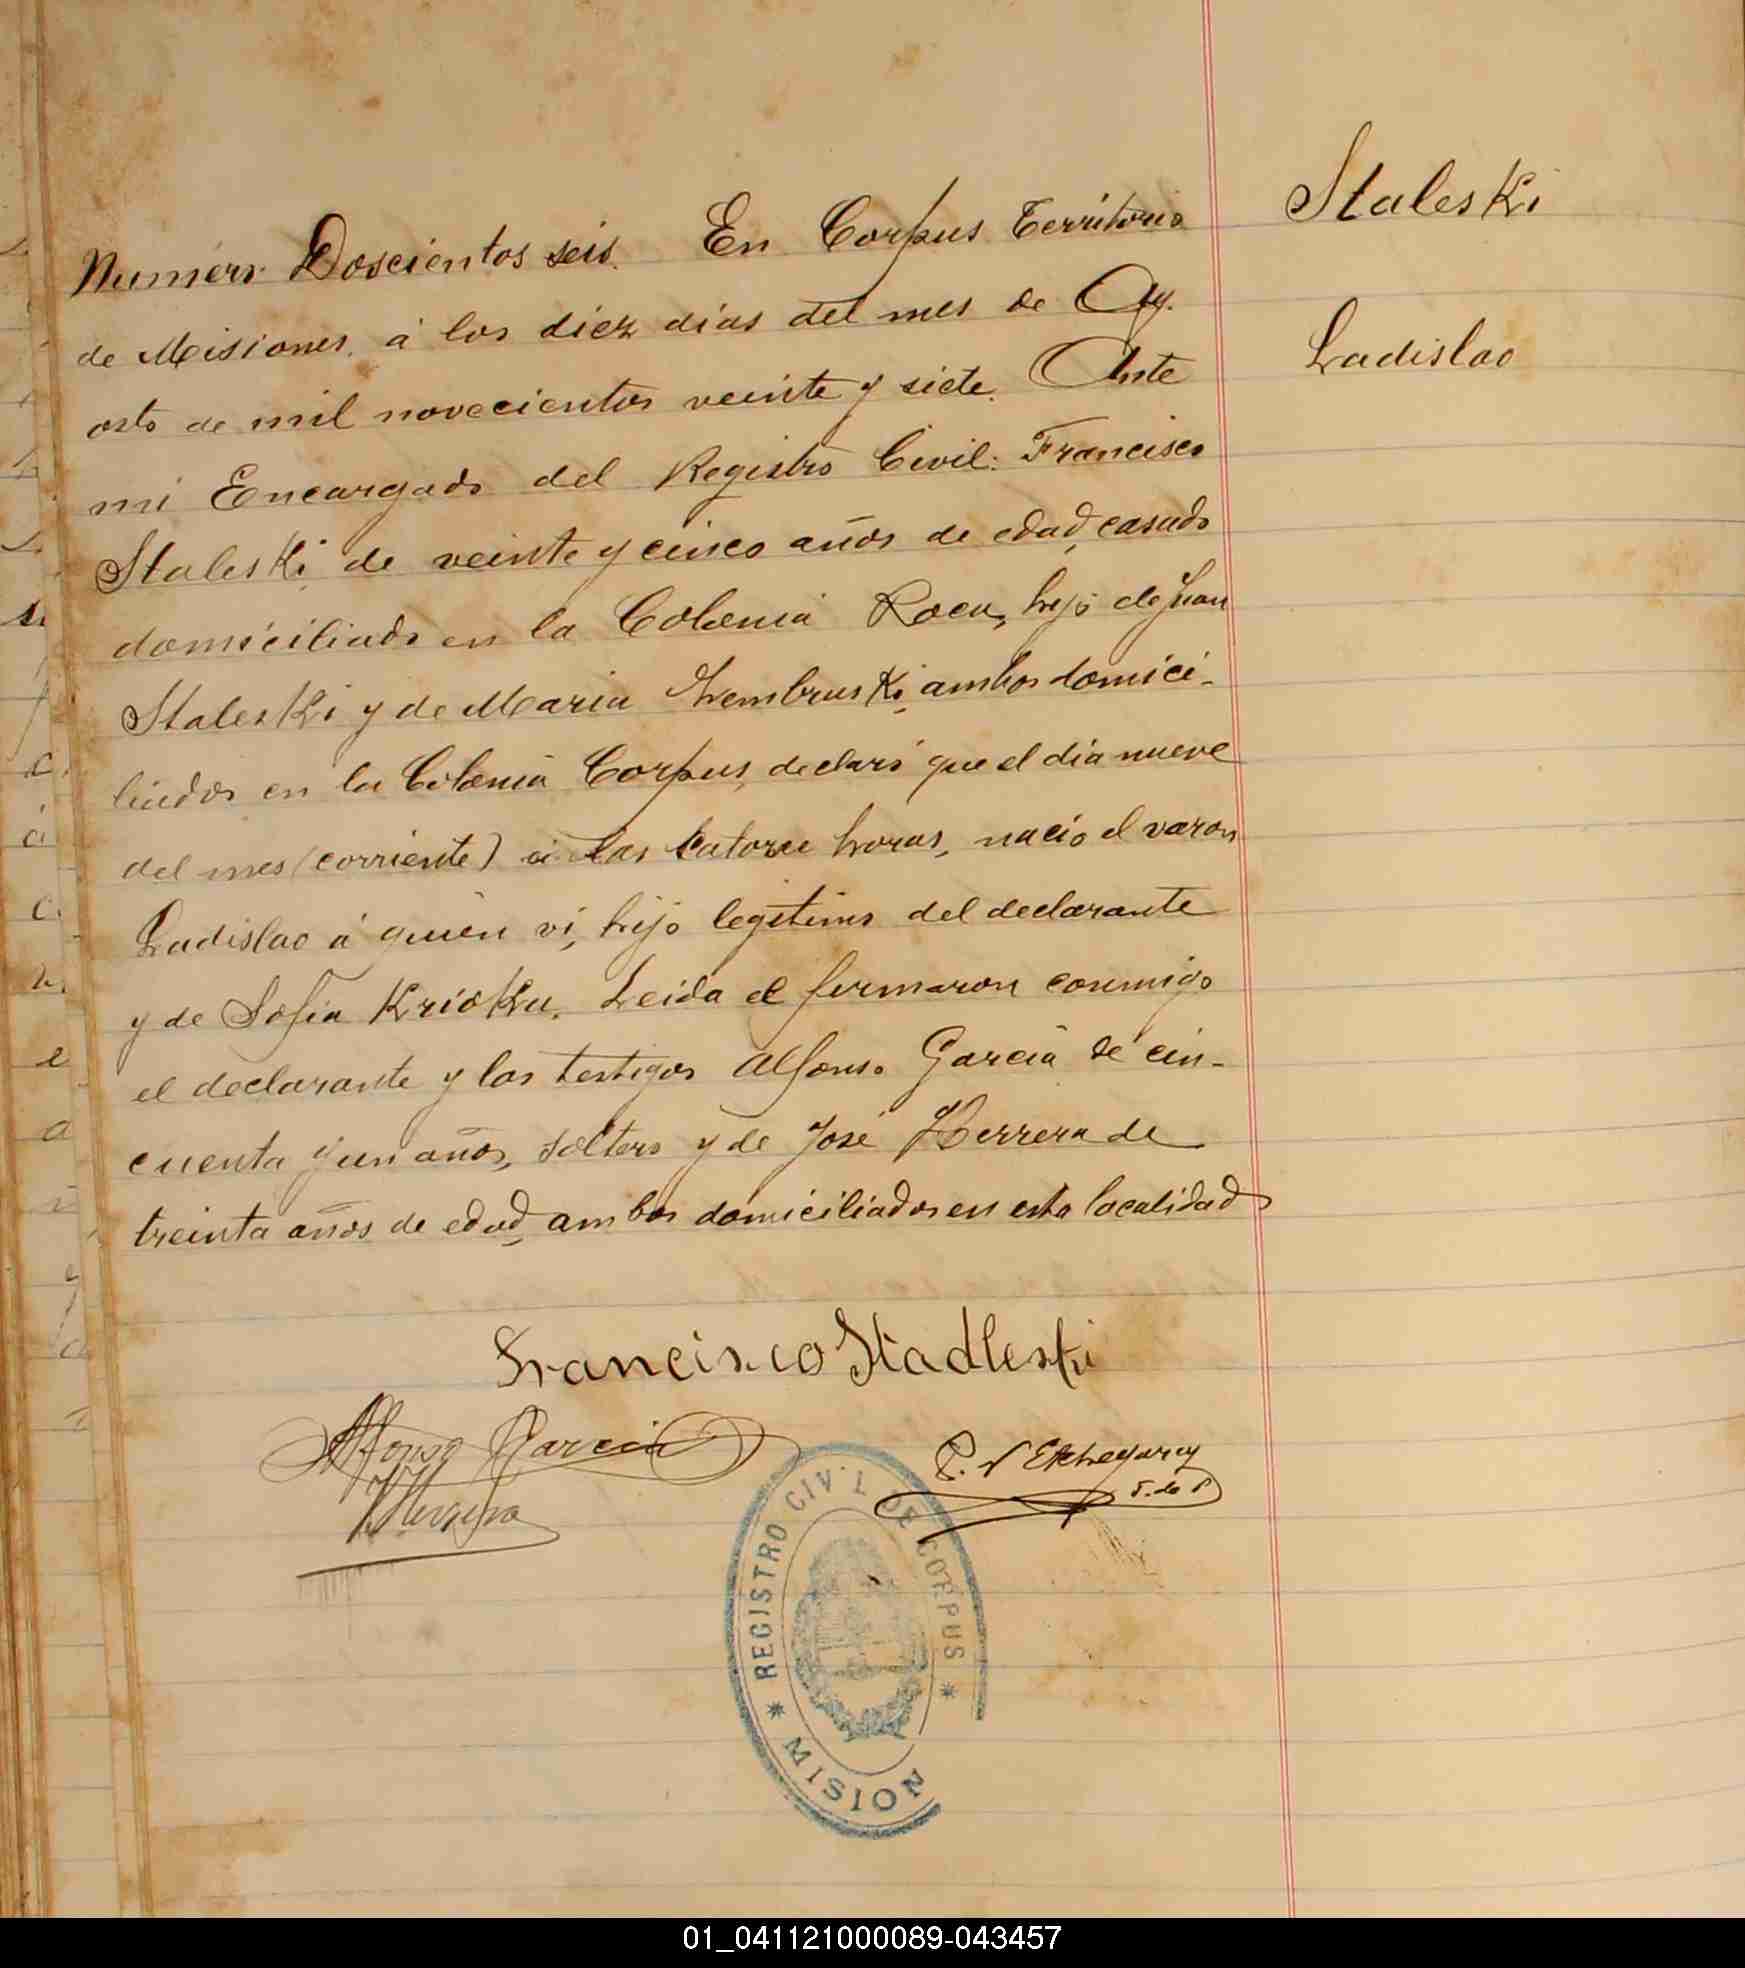 Staleski
Ladislao
Numero Doscientos seis. En Corpus Territorio
de Misiones, á los diez dias del mes de Ag.
osto de mil novecientos veinte y siete. Ante
mi Encargado del Registro Civil: Francisco
Staleski, de veinte y cinco años de edad, casado
domiciliado en la Colonia Roca, hijo de Juan
Staleski y de Maria ambos domici-
liados en la Colonia Corpus, declaró que el dia nueve
del mes (corriente) á las catorce horas, nació el varon
Ladislao á quien vi, hijo legitimo del declarante
y de Sofia Leida el firmaron conmigo
el declarante y los testigos Alfonso Garcia de cin-
cuenta y un años, soltero y de José Herrera de
treinta años de edad, ambos domiciliados en esta localidad
Francisco Stadleski
Alfonso Garcia
JHerrera
P. Etchegaray
REGISTRO CIVIL DE CORPUS
* MISION *
01_041121000089-043457